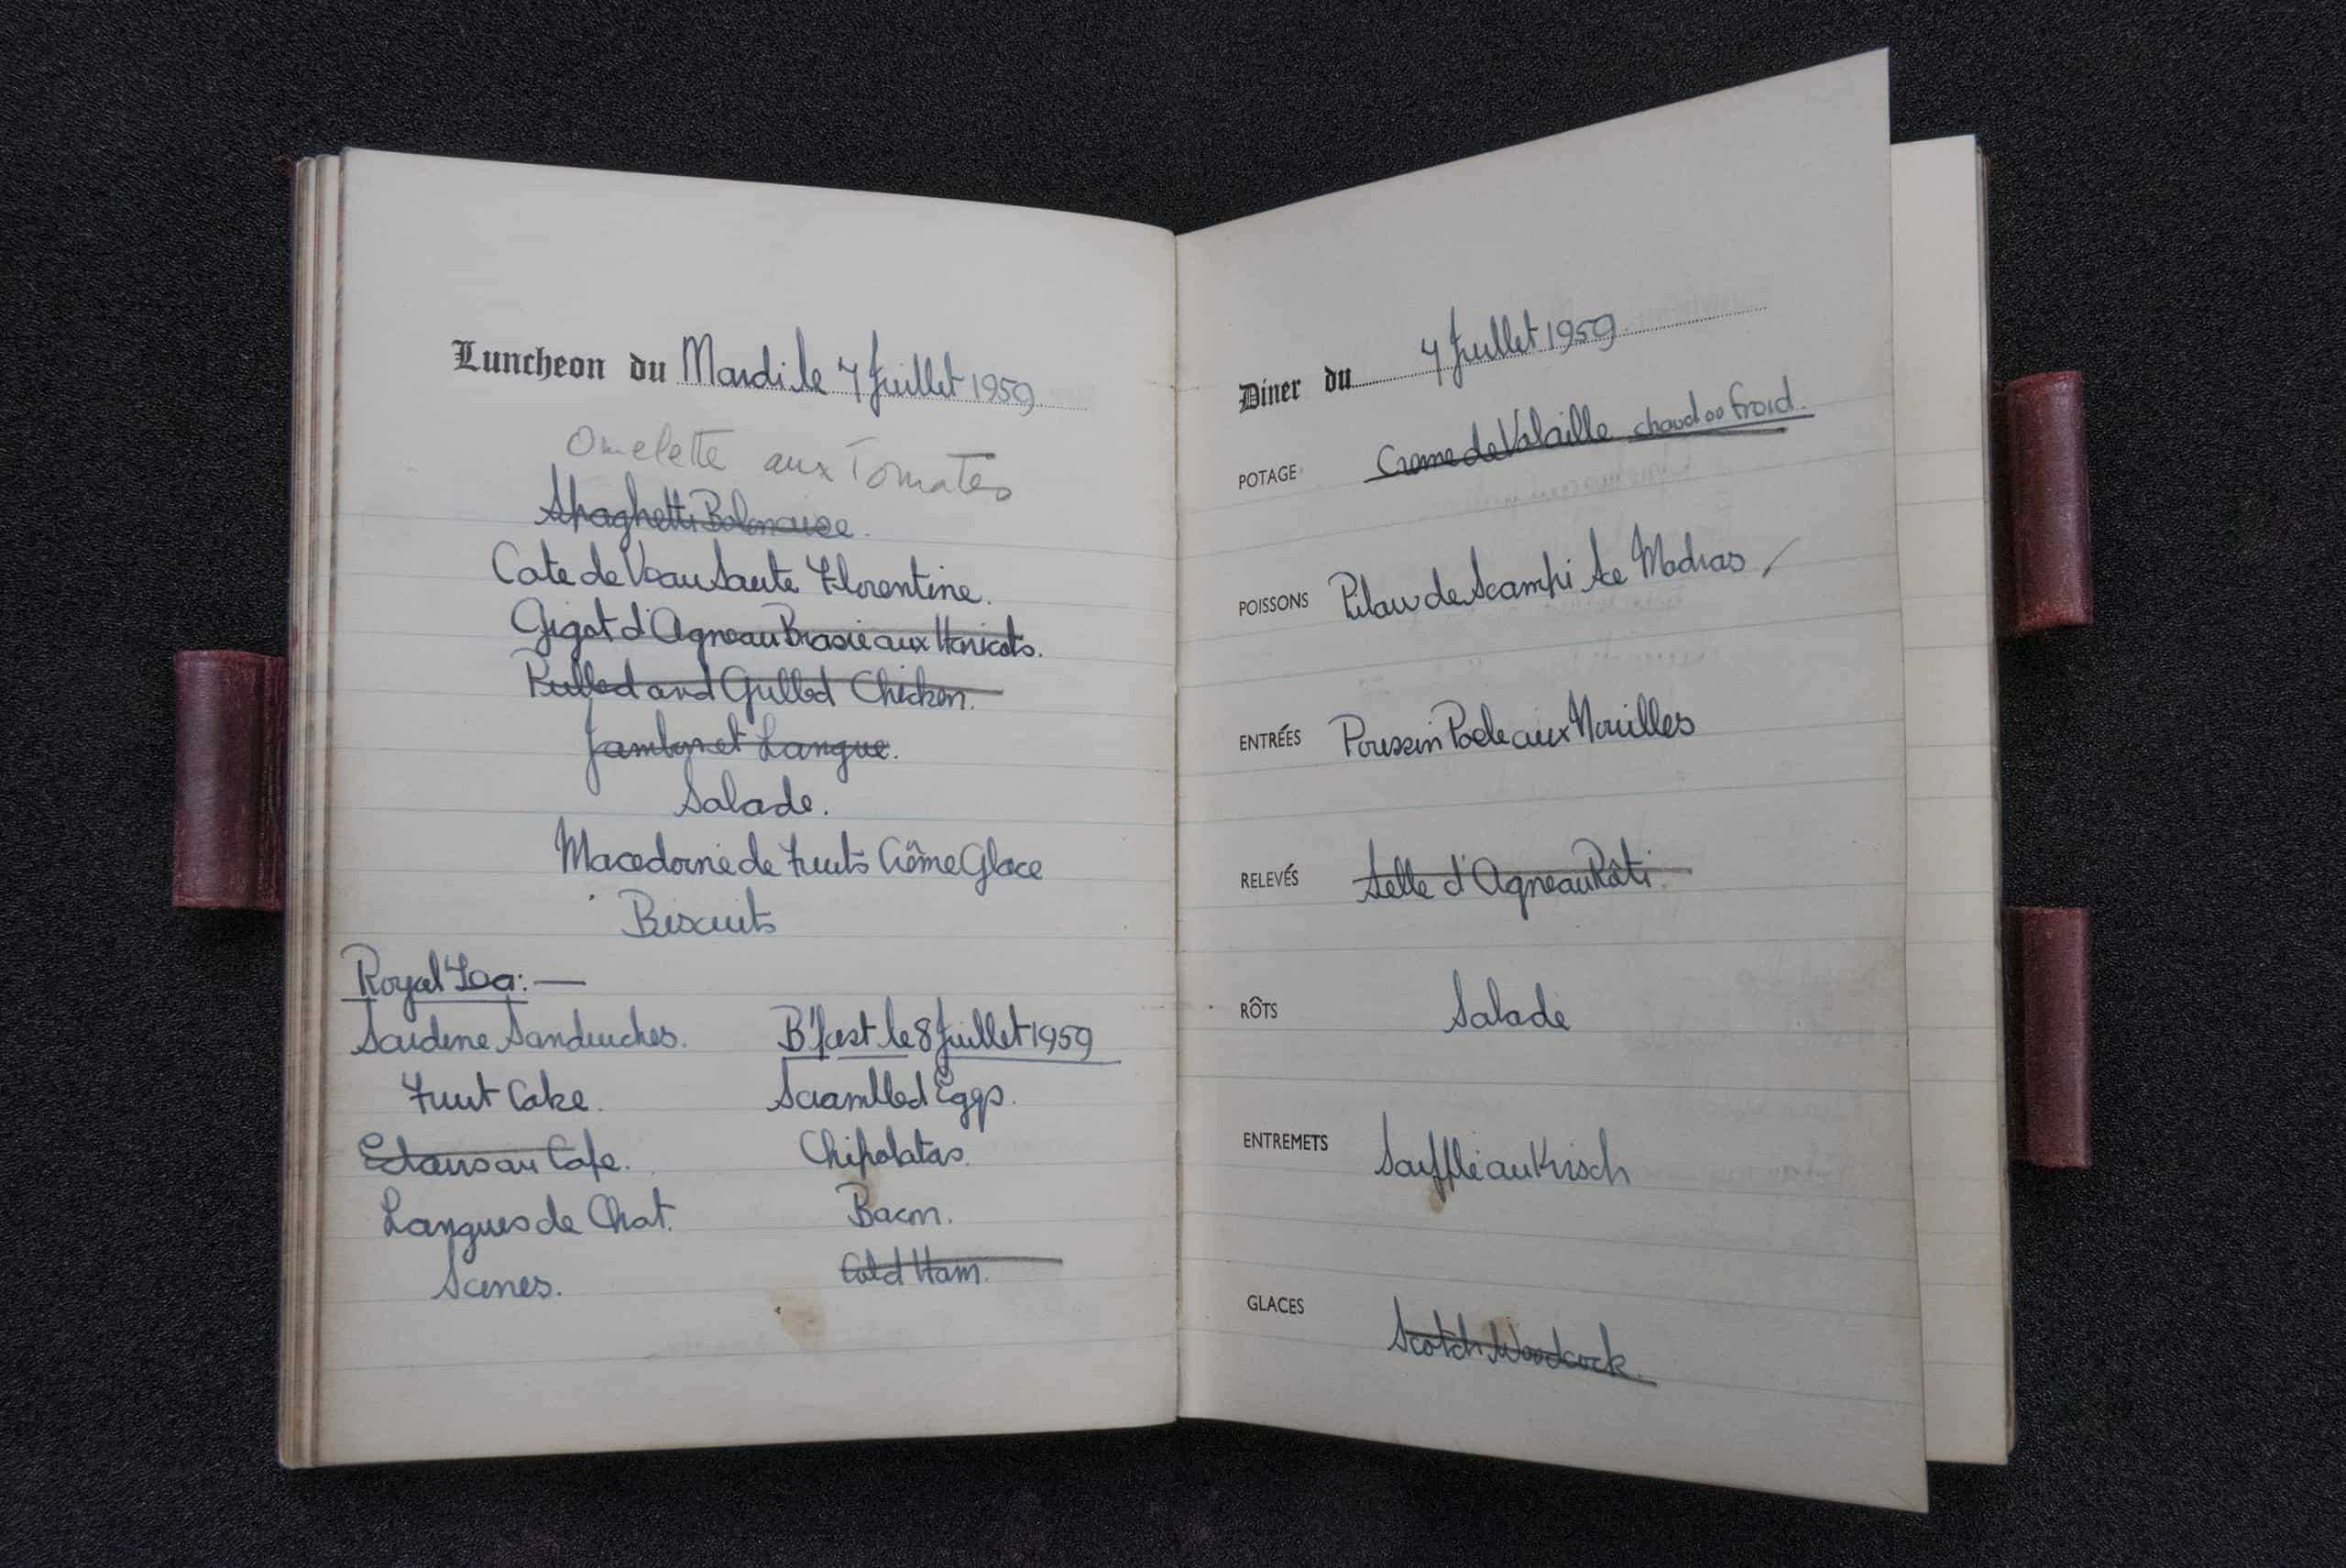 Luncheon du Mardi le 7 Juillet 1959
Omelette aux Tomates
Spaghetti Bolonaise.
Cote de Veau Saute Florentine.
Gigot d'Agneau Brasie aux Haricots.
Pulled and Grilled Chicken.
Jambon et Langue.
Salade.
Macedoine de Fruits Crême Glace
Biscuits
Royal Tea:—
Sardine Sandwiches.
Fruit Cake.
Eclairs au Cafe.
Langues de Chat.
Scones.
B'fast le 8 Juillet 1959
Scrambled Eggs.
Chipolatas.
Bacon.
Cold Ham.
Diner du 7 Juillet 1959
POTAGE Creme de Volaille chaud ou froid.
POISSONS Pilaw de Scampi Sce Madras /
ENTRÉES Poussin Poele aux Nouilles
RELEVÉS Selle d'Agneau Rôti
RÔTS Salade
ENTREMETS Soufflé au Kirsch
GLACES Scotch Woodcock.